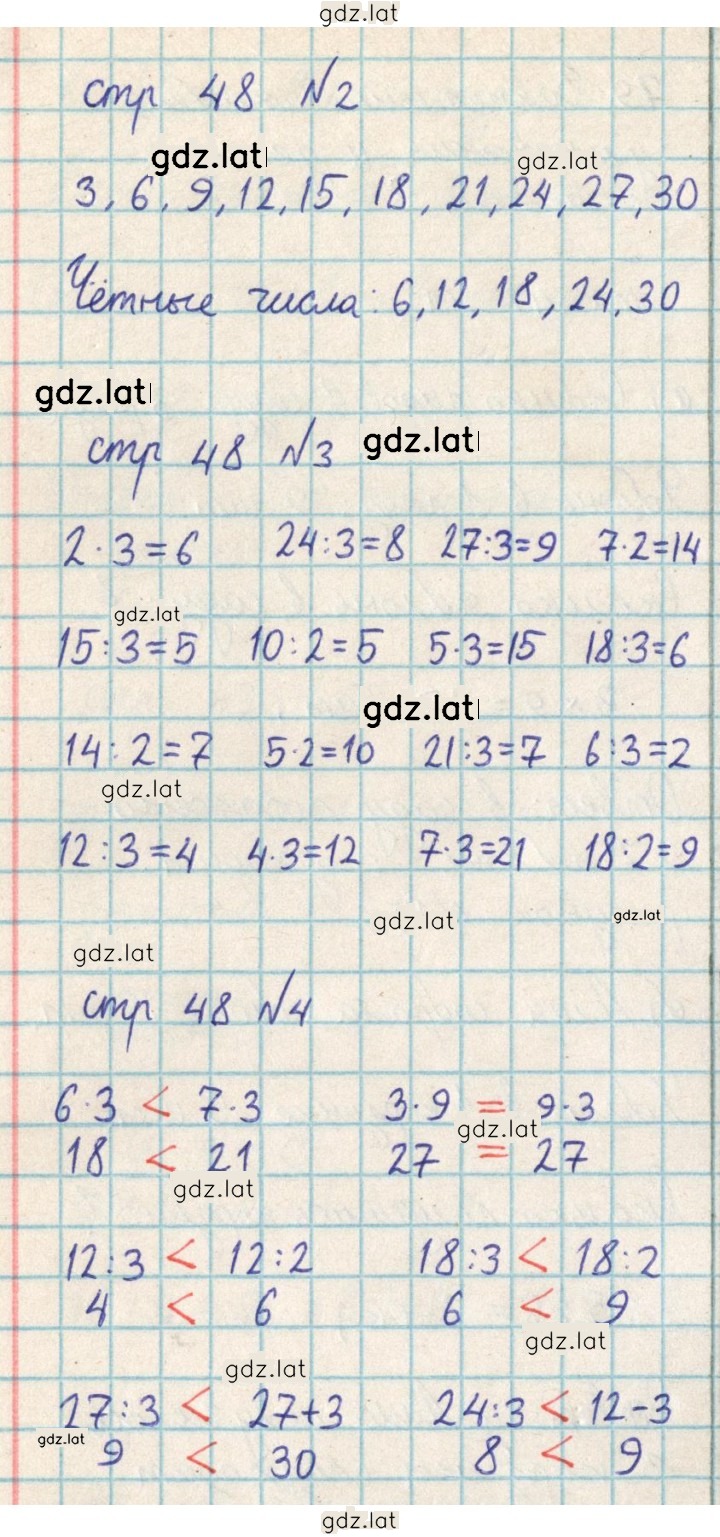 gdz.lat
стр 48 №2
gdz.lat gdz.lat
3, 6, 9, 12, 15, 18, 21, 24, 27, 30
Чётные числа: 6, 12, 18, 24, 30
gdz.lat
стр 48 №3 gdz.lat
2·3=6 24:3=8 27:3=9 7·2=14
gdz.lat
15:3=5 10:2=5 5·3=15 18:3=6
gdz.lat
14:2=7 5·2=10 21:3=7 6:3=2
gdz.lat
12:3=4 4·3=12 7·3=21 18:2=9
gdz.lat gdz.lat
gdz.lat
стр 48 №4
6·3 < 7·3 3·9 = 9·3
gdz.lat
18 < 21 27 = 27
gdz.lat
12:3 < 12:2 18:3 < 18:2
4 < 6 6 < 9
gdz.lat
gdz.lat
27:3 < 27+3 24:3 < 12-3
gdz.lat
9 < 30 8 < 9
gdz.lat